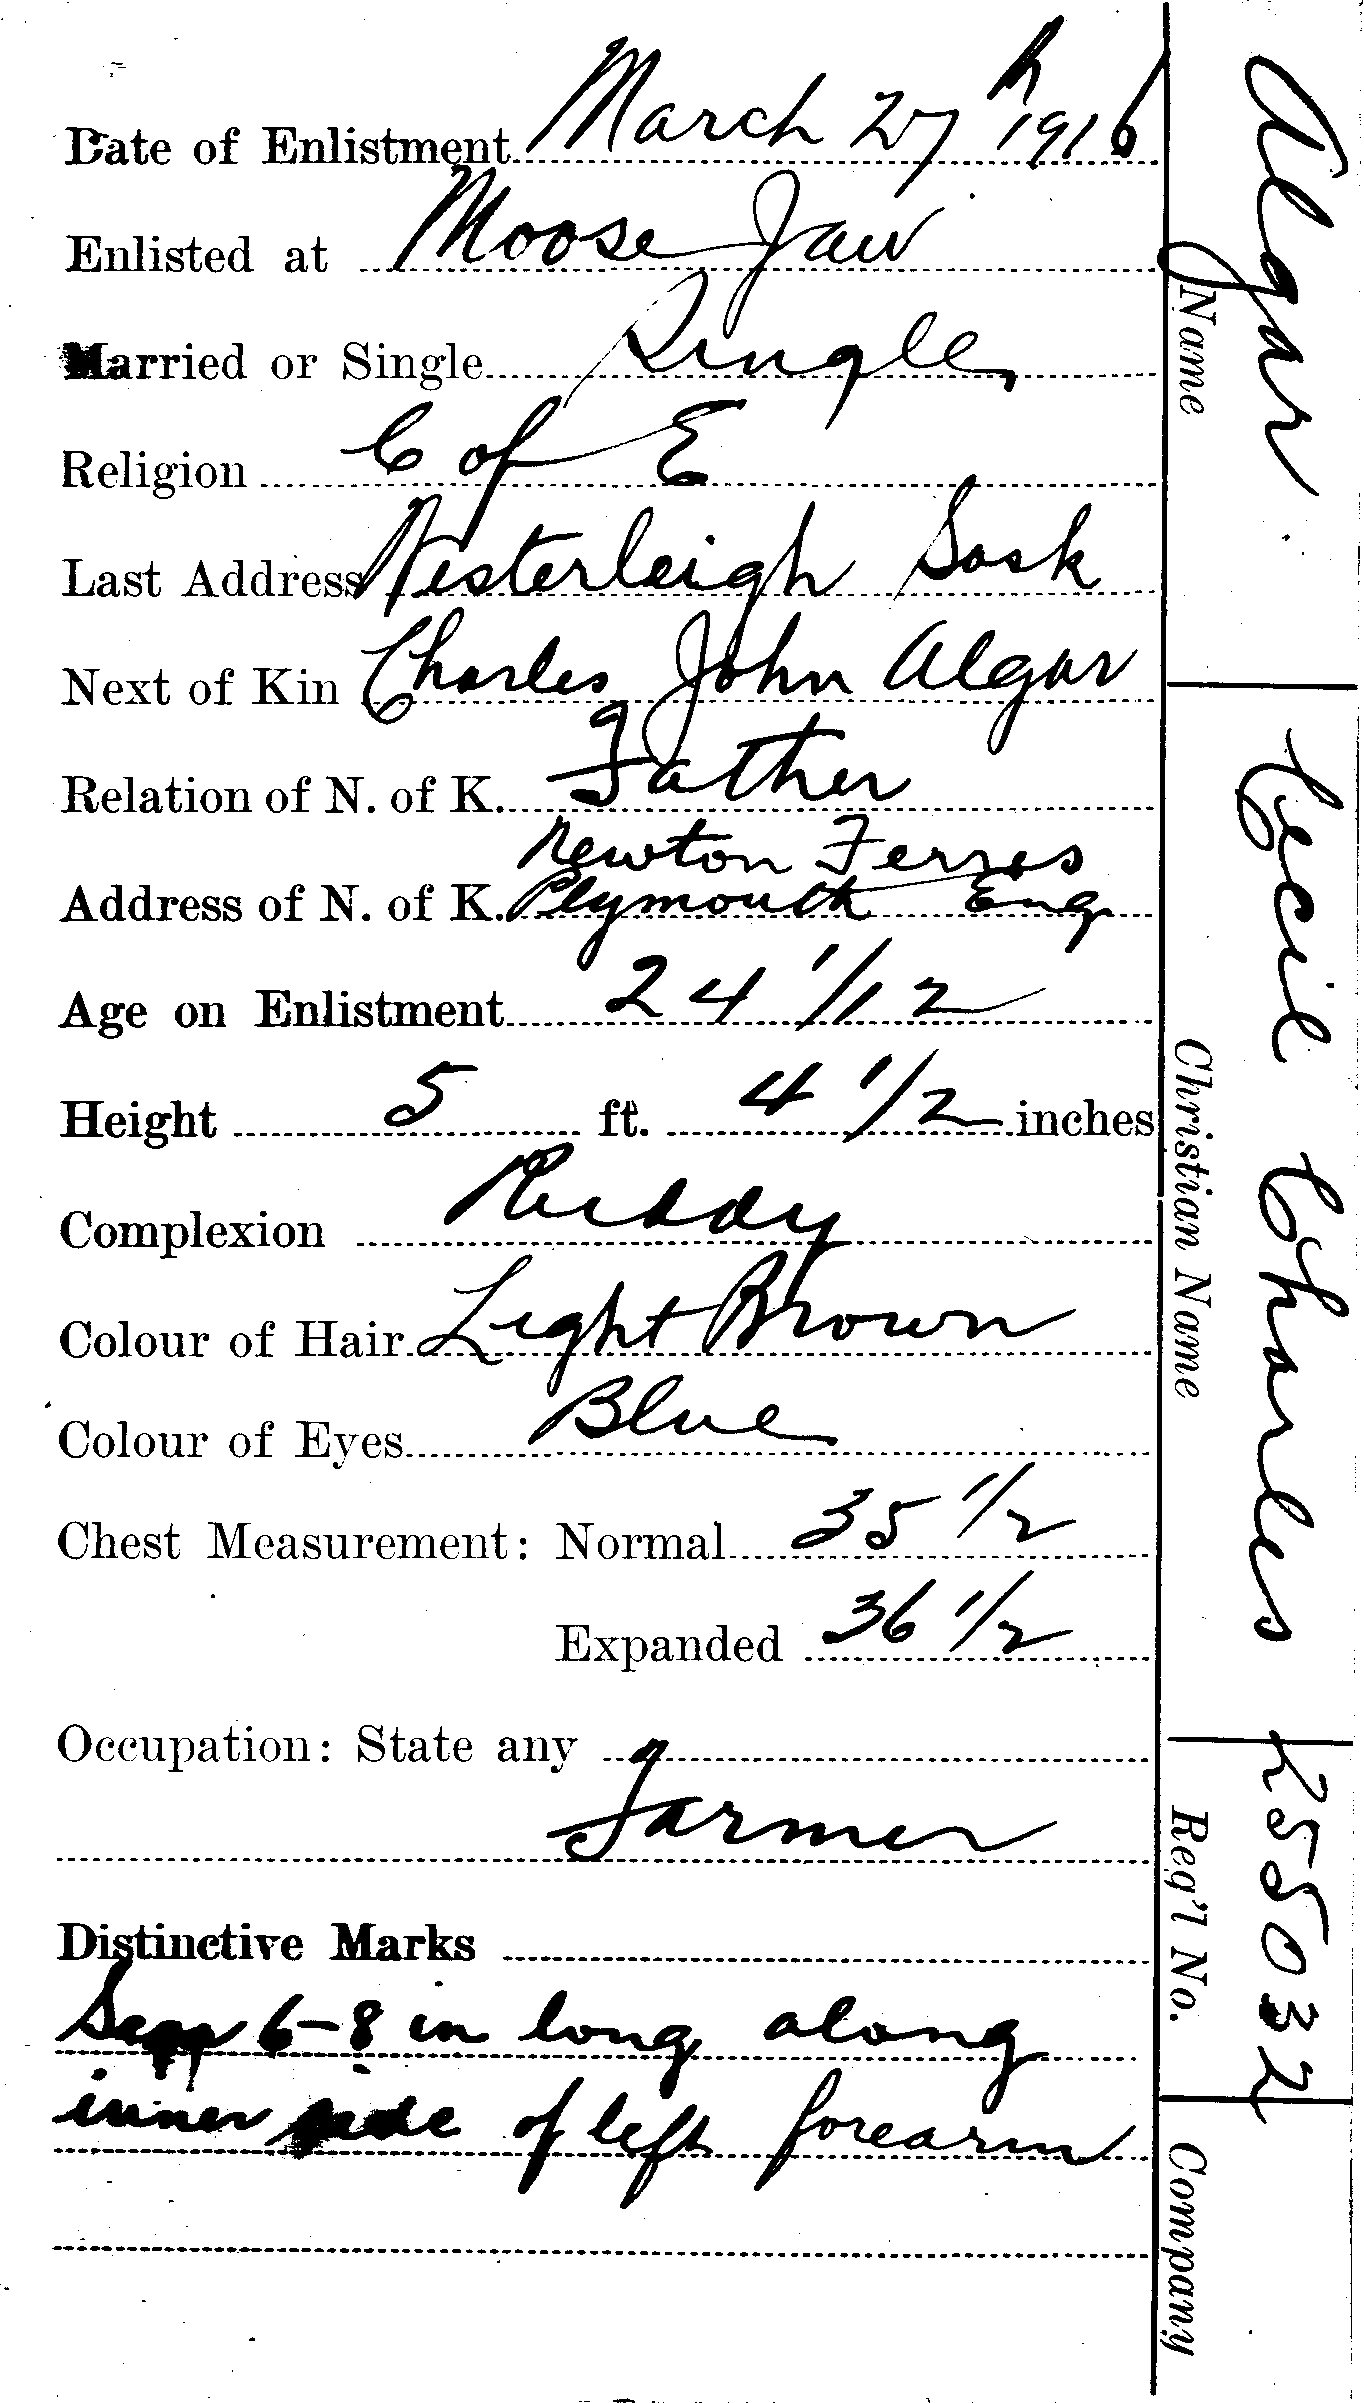 Date of Enlistment March 27th 1916
Enlisted at Moose Jaw
Married or Single Single
Religion C of E
Last Address Westerleigh Sask
Next of Kin Charles John Algar
Relation of N. of K. Father
Newton Ferres
Address of N. of K. Plymouth Eng
Age on Enlistment 24 1/12
Height 5 ft. 4 1/2 inches
Complexion Ruddy
Colour of Hair Light Brown
Colour of Eyes Blue
Chest Measurement: Normal 35 1/2
Expanded 36 1/2
Occupation: State any
Farmer
Distinctive Marks
6-8 in long along
inner side of left forearm
Algar Cecil Charles 255032
Name Christian Name Reg'l No. Company